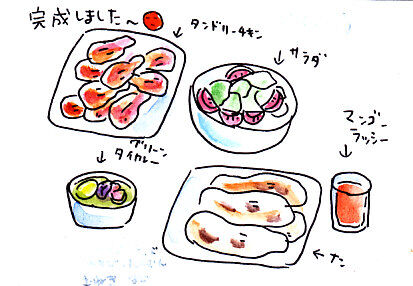 完成しました～
タンドリーチキン
サラダ
マンゴー
ラッシー
グリーン
タイカレー
ナン